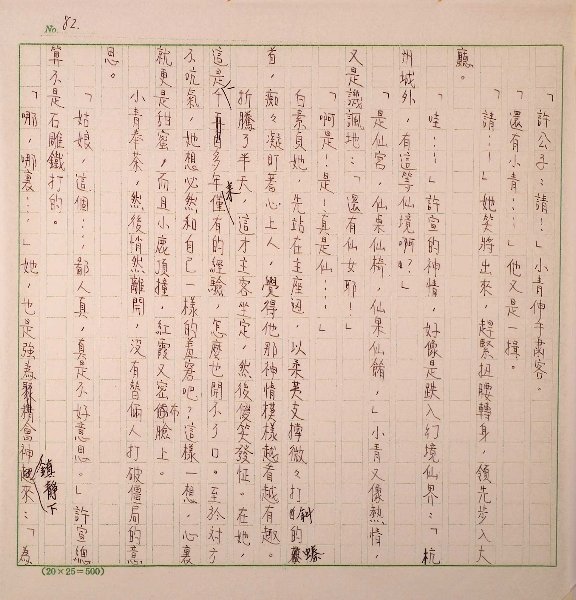 No. 82.
「許公子：請！」小青伸手肅客。
「還有小青…」他又是一揖。
「請…」她笑將出來，趕緊扭腰轉身，領先步入大
廳。
「哇…！」許宣的神情，好像是跌入幻境仙界：「杭
州城外，有這等仙境啊？」
「是仙宮，仙桌仙椅，仙果仙餚，」小青又像熱情，
又是諷諷地：「還有仙女耶！」
「啊是！是！真是仙…」
白素貞她，先站在主座迎，以柔荑支撐微々打斜的螓
首，痴々凝盯著心上人，覺得他那神情模樣越看越有趣。
折騰了半天，這才主客坐定，然後傻笑發怔。在她，
這是千百多年僅有的經驗，怎麼也開不了口。至於對方
不吭氣，她想必然和自己一樣的羞窘吧？這樣一想，心裏
就更是甜蜜，而且小鹿頂撞，紅霞又密佈臉上。
小青奉茶，然後悄然離開，沒有替倆人打破僵局的意
思。
「姑娘，這個…鄙人真，真是不好意思。」許宣總
算不是石雕鐵打的。
「哪，哪裏…」她，也是強為鎮靜下來：「為
(20×25＝500)